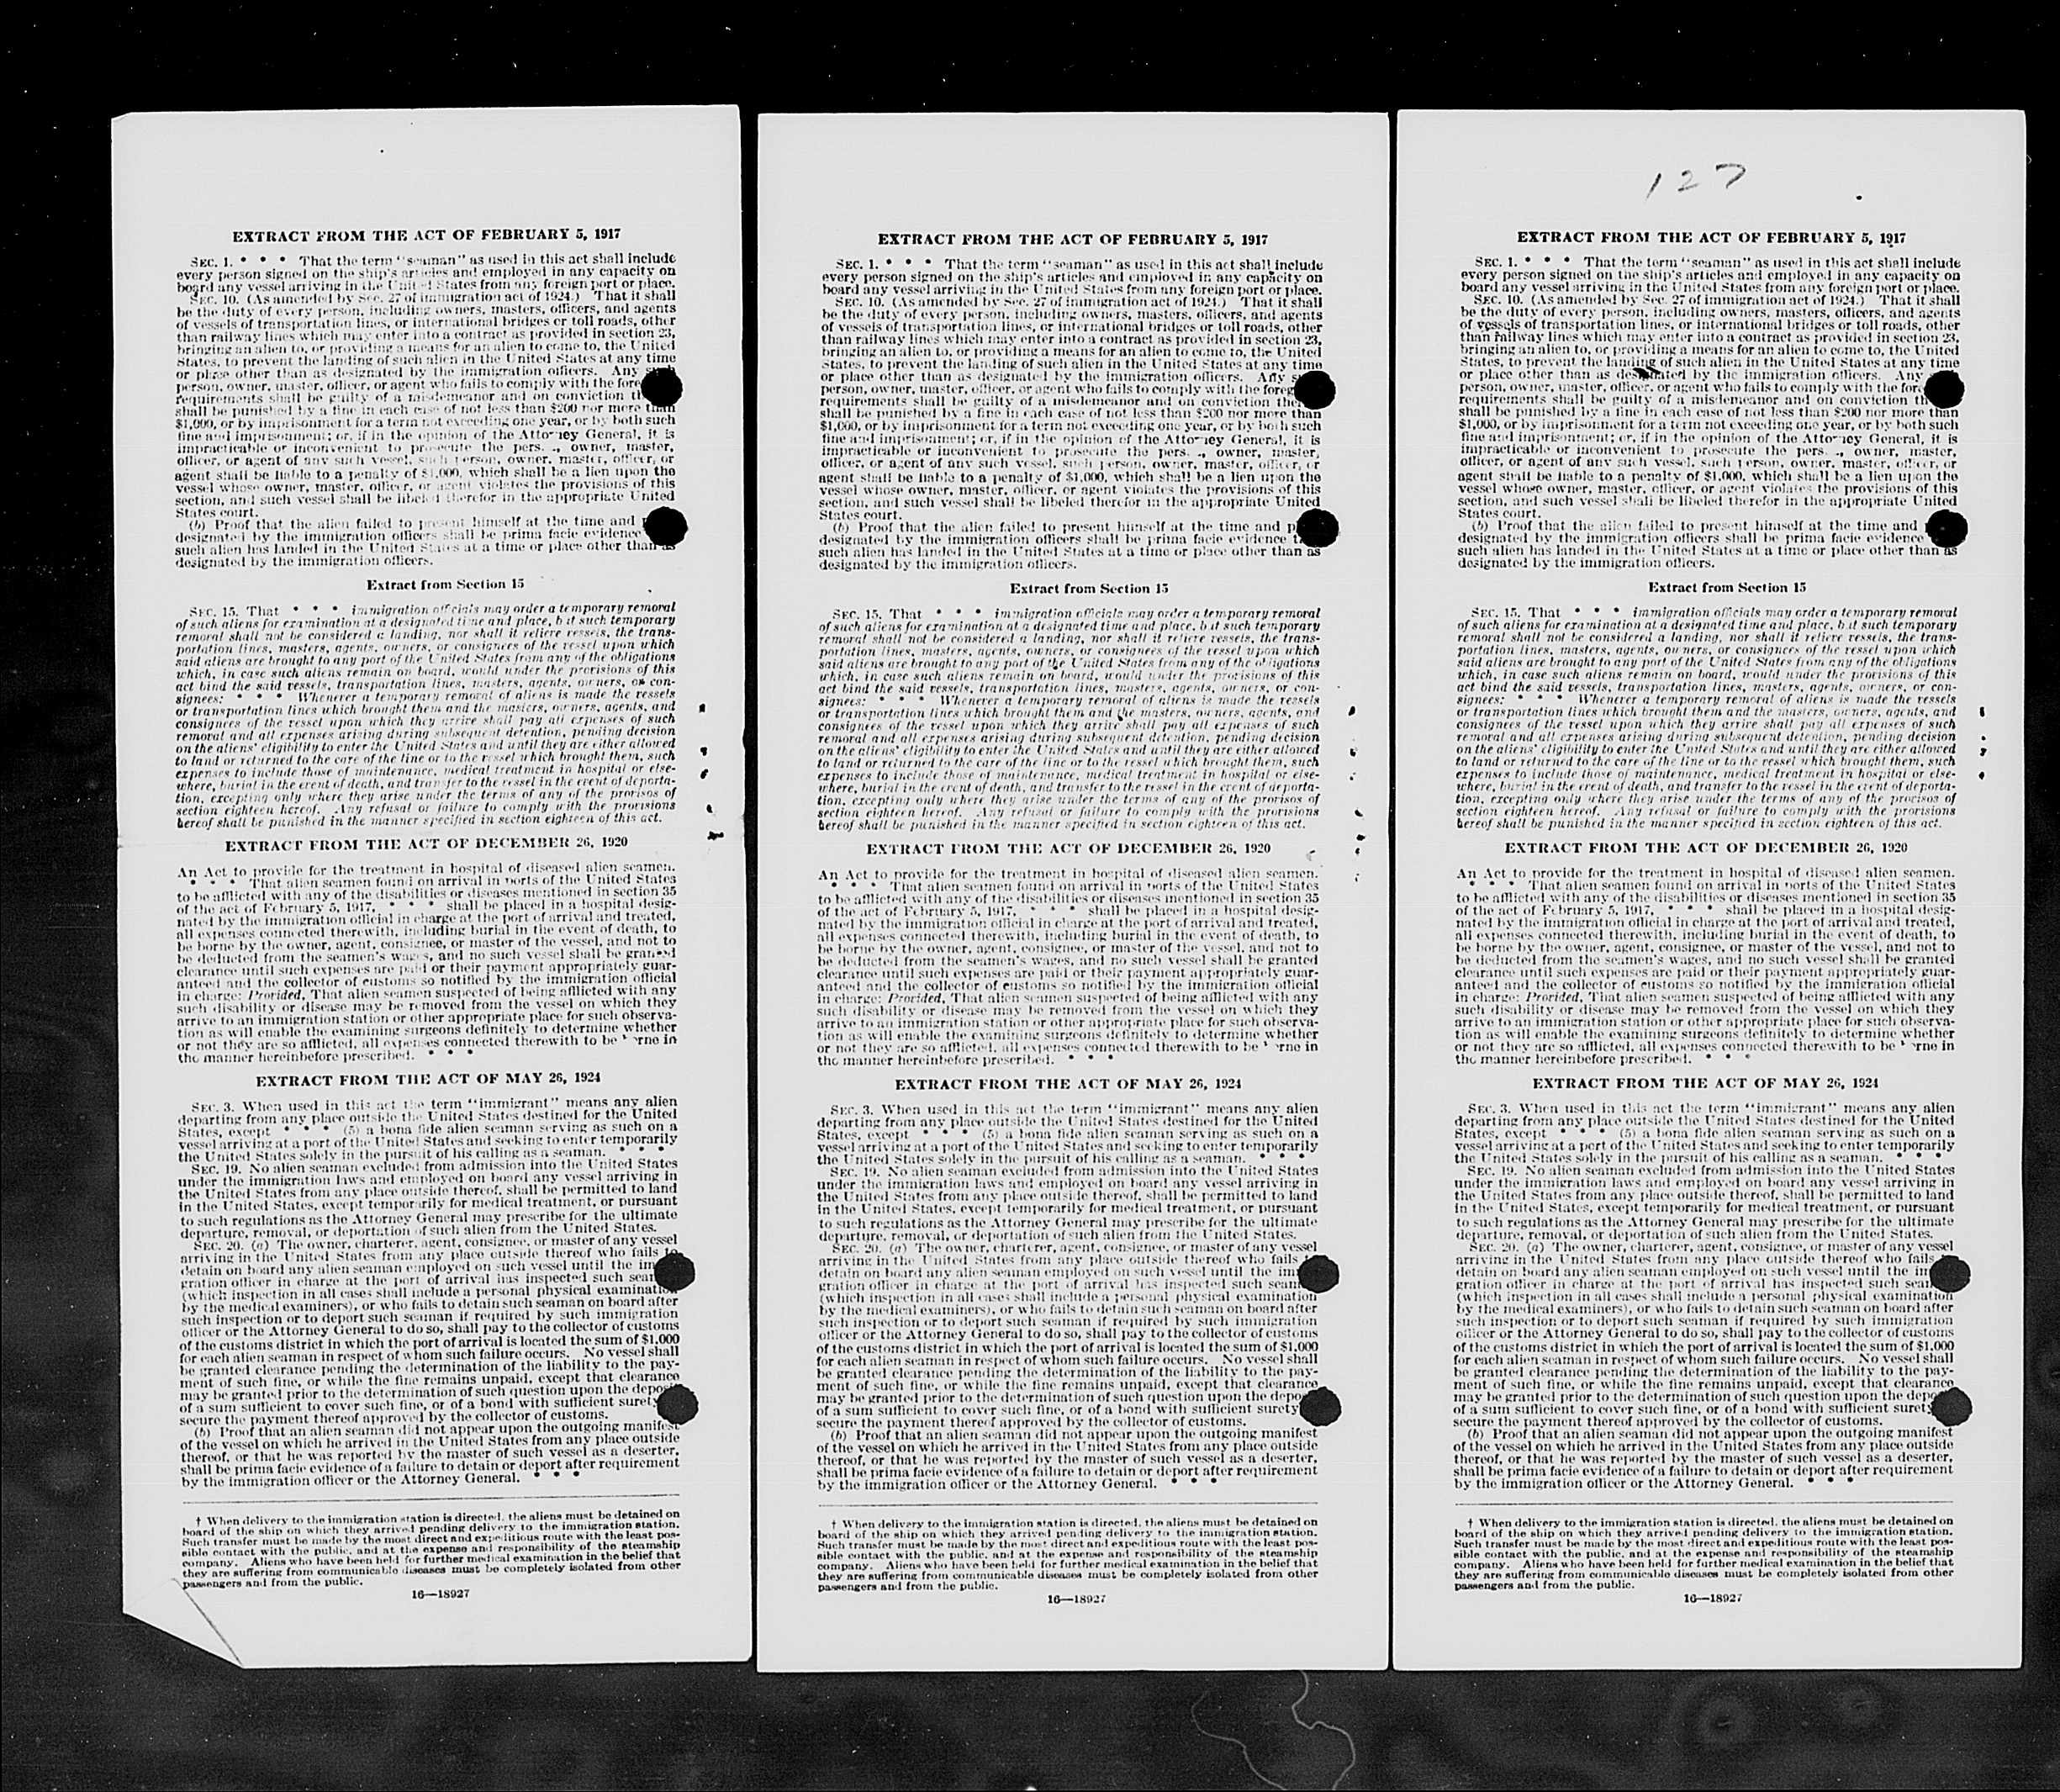 EXTRACT FROM THE ACT OF FEBRUARY 5, 1917
SEC. 1. * * * That the term "seaman" as used in this act shall include
every person signed on the ship's articles and employed in any capacity on
board any vessel arriving in the United States from any foreign port or place.
SEC. 10. (As amended by Sec. 27 of immigration act of 1924.) That it shall
be the duty of every person, including owners, masters, officers, and agents
of vessels of transportation lines, or international bridges or toll roads, other
than railway lines which may enter into a contract as provided in section 23,
bringing an alien to, or providing a means for an alien to come to, the United
States, to prevent the landing of such alien in the United States at any time
or place other than as designated by the immigration officers. Any such
person, owner, master, officer, or agent who fails to comply with the fore
requirements shall be guilty of a misdemeanor and on conviction
shall be punished by a fine in each case of not less than $200 nor more than
$1,000, or by imprisonment for a term not exceeding one year, or by both such
fine and imprisonment; or, if in the opinion of the Attorney General, it is
impracticable or inconvenient to prosecute the pers. ., owner, master,
officer, or agent of any such vessel, such person, owner, master, officer, or
agent shall be liable to a penalty of $1,000, which shall be a lien upon the
vessel whose owner, master, officer, or agent violates the provisions of this
section, and such vessel shall be libeled therefor in the appropriate United
States court.
(b) Proof that the alien failed to present himself at the time and
designated by the immigration officers shall be prima facie evidence
such alien has landed in the United States at a time or place other than as
designated by the immigration officers.
Extract from Section 15
SEC. 15. That * * * immigration officials may order a temporary removal
of such aliens for examination at a designated time and place, but such temporary
removal shall not be considered a landing, nor shall it relieve vessels, the trans-
portation lines, masters, agents, owners, or consignees of the vessel upon which
said aliens are brought to any port of the United States from any of the obligations
which, in case such aliens remain on board, would under the provisions of this
act bind the said vessels, transportation lines, masters, agents, owners, or con-
signees: * * * Whenever a temporary removal of aliens is made the vessels
or transportation lines which brought them and the masters, owners, agents, and
consignees of the vessel upon which they arrive shall pay all expenses of such
removal and all expenses arising during subsequent detention, pending decision
on the aliens' eligibility to enter the United States and until they are either allowed
to land or returned to the care of the line or to the vessel which brought them, such
expenses to include those of maintenance, medical treatment in hospital or else-
where, burial in the event of death, and transfer to the vessel in the event of deporta-
tion, excepting only where they arise under the terms of any of the provisos of
section eighteen hereof. Any refusal or failure to comply with the provisions
hereof shall be punished in the manner specified in section eighteen of this act.
EXTRACT FROM THE ACT OF DECEMBER 26, 1920
An Act to provide for the treatment in hospital of diseased alien seamen.
* * * That alien seamen found on arrival in ports of the United States
to be afflicted with any of the disabilities or diseases mentioned in section 35
of the act of February 5, 1917, * * * shall be placed in a hospital desig-
nated by the immigration official in charge at the port of arrival and treated,
all expenses connected therewith, including burial in the event of death, to
be borne by the owner, agent, consignee, or master of the vessel, and not to
be deducted from the seamen's wages, and no such vessel shall be granted
clearance until such expenses are paid or their payment appropriately guar-
anteed and the collector of customs so notified by the immigration official
in charge: Provided, That alien seamen suspected of being afflicted with any
such disability or disease may be removed from the vessel on which they
arrive to an immigration station or other appropriate place for such observa-
tion as will enable the examining surgeons definitely to determine whether
or not they are so afflicted, all expenses connected therewith to be borne in
the manner hereinbefore prescribed. * * *
EXTRACT FROM THE ACT OF MAY 26, 1924
SEC. 3. When used in this act the term "immigrant" means any alien
departing from any place outside the United States destined for the United
States, except * * * (5) a bona fide alien seaman serving as such on a
vessel arriving at a port of the United States and seeking to enter temporarily
the United States solely in the pursuit of his calling as a seaman. * * *
SEC. 19. No alien seaman excluded from admission into the United States
under the immigration laws and employed on board any vessel arriving in
the United States from any place outside thereof, shall be permitted to land
in the United States, except temporarily for medical treatment, or pursuant
to such regulations as the Attorney General may prescribe for the ultimate
departure, removal, or deportation of such alien from the United States.
SEC. 20. (a) The owner, charterer, agent, consignee, or master of any vessel
arriving in the United States from any place outside thereof who fails to
detain on board any alien seaman employed on such vessel until the im
gration officer in charge at the port of arrival has inspected such sea
(which inspection in all cases shall include a personal physical examination
by the medical examiners), or who fails to detain such seaman on board after
such inspection or to deport such seaman if required by such immigration
officer or the Attorney General to do so, shall pay to the collector of customs
of the customs district in which the port of arrival is located the sum of $1,000
for each alien seaman in respect of whom such failure occurs. No vessel shall
be granted clearance pending the determination of the liability to the pay-
ment of such fine, or while the fine remains unpaid, except that clearance
may be granted prior to the determination of such question upon the deposit
of a sum sufficient to cover such fine, or of a bond with sufficient surety
secure the payment thereof approved by the collector of customs.
(b) Proof that an alien seaman did not appear upon the outgoing manifest
of the vessel on which he arrived in the United States from any place outside
thereof, or that he was reported by the master of such vessel as a deserter,
shall be prima facie evidence of a failure to detain or deport after requirement
by the immigration officer or the Attorney General. * * *
† When delivery to the immigration station is directed, the aliens must be detained on
board of the ship on which they arrived pending delivery to the immigration station.
Such transfer must be made by the most direct and expeditious route with the least pos-
sible contact with the public, and at the expense and responsibility of the steamship
company. Aliens who have been held for further medical examination in the belief that
they are suffering from communicable diseases must be completely isolated from other
passengers and from the public.
16—18927
EXTRACT FROM THE ACT OF FEBRUARY 5, 1917
SEC. 1. * * * That the term "seaman" as used in this act shall include
every person signed on the ship's articles and employed in any capacity on
board any vessel arriving in the United States from any foreign port or place.
SEC. 10. (As amended by Sec. 27 of immigration act of 1924.) That it shall
be the duty of every person, including owners, masters, officers, and agents
of vessels of transportation lines, or international bridges or toll roads, other
than railway lines which may enter into a contract as provided in section 23,
bringing an alien to, or providing a means for an alien to come to, the United
States, to prevent the landing of such alien in the United States at any time
or place other than as designated by the immigration officers. Any
person, owner, master, officer, or agent who fails to comply with the foreg
requirements shall be guilty of a misdemeanor and on conviction the
shall be punished by a fine in each case of not less than $200 nor more than
$1,000, or by imprisonment for a term not exceeding one year, or by both such
fine and imprisonment; or, if in the opinion of the Attorney General, it is
impracticable or inconvenient to prosecute the pers. ., owner, master,
officer, or agent of any such vessel, such person, owner, master, officer, or
agent shall be liable to a penalty of $1,000, which shall be a lien upon the
vessel whose owner, master, officer, or agent violates the provisions of this
section, and such vessel shall be libeled therefor in the appropriate United
States court.
(b) Proof that the alien failed to present himself at the time and p
designated by the immigration officers shall be prima facie evidence t
such alien has landed in the United States at a time or place other than as
designated by the immigration officers.
Extract from Section 15
SEC. 15. That * * * immigration officials may order a temporary removal
of such aliens for examination at a designated time and place, but such temporary
removal shall not be considered a landing, nor shall it relieve vessels, the trans-
portation lines, masters, agents, owners, or consignees of the vessel upon which
said aliens are brought to any port of the United States from any of the obligations
which, in case such aliens remain on board, would under the provisions of this
act bind the said vessels, transportation lines, masters, agents, owners, or con-
signees: * * * Whenever a temporary removal of aliens is made the vessels
or transportation lines which brought them and the masters, owners, agents, and
consignees of the vessel upon which they arrive shall pay all expenses of such
removal and all expenses arising during subsequent detention, pending decision
on the aliens' eligibility to enter the United States and until they are either allowed
to land or returned to the care of the line or to the vessel which brought them, such
expenses to include those of maintenance, medical treatment in hospital or else-
where, burial in the event of death, and transfer to the vessel in the event of deporta-
tion, excepting only where they arise under the terms of any of the provisos of
section eighteen hereof. Any refusal or failure to comply with the provisions
hereof shall be punished in the manner specified in section eighteen of this act.
EXTRACT FROM THE ACT OF DECEMBER 26, 1920
An Act to provide for the treatment in hospital of diseased alien seamen.
* * * That alien seamen found on arrival in ports of the United States
to be afflicted with any of the disabilities or diseases mentioned in section 35
of the act of February 5, 1917, * * * shall be placed in a hospital desig-
nated by the immigration official in charge at the port of arrival and treated,
all expenses connected therewith, including burial in the event of death, to
be borne by the owner, agent, consignee, or master of the vessel, and not to
be deducted from the seamen's wages, and no such vessel shall be granted
clearance until such expenses are paid or their payment appropriately guar-
anteed and the collector of customs so notified by the immigration official
in charge: Provided, That alien seamen suspected of being afflicted with any
such disability or disease may be removed from the vessel on which they
arrive to an immigration station or other appropriate place for such observa-
tion as will enable the examining surgeons definitely to determine whether
or not they are so afflicted, all expenses connected therewith to be borne in
the manner hereinbefore prescribed. * * *
EXTRACT FROM THE ACT OF MAY 26, 1924
SEC. 3. When used in this act the term "immigrant" means any alien
departing from any place outside the United States destined for the United
States, except * * * (5) a bona fide alien seaman serving as such on a
vessel arriving at a port of the United States and seeking to enter temporarily
the United States solely in the pursuit of his calling as a seaman. * * *
SEC. 19. No alien seaman excluded from admission into the United States
under the immigration laws and employed on board any vessel arriving in
the United States from any place outside thereof, shall be permitted to land
in the United States, except temporarily for medical treatment, or pursuant
to such regulations as the Attorney General may prescribe for the ultimate
departure, removal, or deportation of such alien from the United States.
SEC. 20. (a) The owner, charterer, agent, consignee, or master of any vessel
arriving in the United States from any place outside thereof who fails
detain on board any alien seaman employed on such vessel until the im
gration officer in charge at the port of arrival has inspected such seam
(which inspection in all cases shall include a personal physical examination
by the medical examiners), or who fails to detain such seaman on board after
such inspection or to deport such seaman if required by such immigration
officer or the Attorney General to do so, shall pay to the collector of customs
of the customs district in which the port of arrival is located the sum of $1,000
for each alien seaman in respect of whom such failure occurs. No vessel shall
be granted clearance pending the determination of the liability to the pay-
ment of such fine, or while the fine remains unpaid, except that clearance
may be granted prior to the determination of such question upon the depos
of a sum sufficient to cover such fine, or of a bond with sufficient surety
secure the payment thereof approved by the collector of customs.
(b) Proof that an alien seaman did not appear upon the outgoing manifest
of the vessel on which he arrived in the United States from any place outside
thereof, or that he was reported by the master of such vessel as a deserter,
shall be prima facie evidence of a failure to detain or deport after requirement
by the immigration officer or the Attorney General. * * *
† When delivery to the immigration station is directed, the aliens must be detained on
board of the ship on which they arrived pending delivery to the immigration station.
Such transfer must be made by the most direct and expeditious route with the least pos-
sible contact with the public, and at the expense and responsibility of the steamship
company. Aliens who have been held for further medical examination in the belief that
they are suffering from communicable diseases must be completely isolated from other
passengers and from the public.
16—18927
127
EXTRACT FROM THE ACT OF FEBRUARY 5, 1917
SEC. 1. * * * That the term "seaman" as used in this act shall include
every person signed on the ship's articles and employed in any capacity on
board any vessel arriving in the United States from any foreign port or place.
SEC. 10. (As amended by Sec. 27 of immigration act of 1924.) That it shall
be the duty of every person, including owners, masters, officers, and agents
of vessels of transportation lines, or international bridges or toll roads, other
than railway lines which may enter into a contract as provided in section 23,
bringing an alien to, or providing a means for an alien to come to, the United
States, to prevent the landing of such alien in the United States at any time
or place other than as designated by the immigration officers. Any
person, owner, master, officer, or agent who fails to comply with the fore
requirements shall be guilty of a misdemeanor and on conviction th
shall be punished by a fine in each case of not less than $200 nor more than
$1,000, or by imprisonment for a term not exceeding one year, or by both such
fine and imprisonment; or, if in the opinion of the Attorney General, it is
impracticable or inconvenient to prosecute the pers. ., owner, master,
officer, or agent of any such vessel, such person, owner, master, officer, or
agent shall be liable to a penalty of $1,000, which shall be a lien upon the
vessel whose owner, master, officer, or agent violates the provisions of this
section, and such vessel shall be libeled therefor in the appropriate United
States court.
(b) Proof that the alien failed to present himself at the time and
designated by the immigration officers shall be prima facie evidence
such alien has landed in the United States at a time or place other than as
designated by the immigration officers.
Extract from Section 15
SEC. 15. That * * * immigration officials may order a temporary removal
of such aliens for examination at a designated time and place, but such temporary
removal shall not be considered a landing, nor shall it relieve vessels, the trans-
portation lines, masters, agents, owners, or consignees of the vessel upon which
said aliens are brought to any port of the United States from any of the obligations
which, in case such aliens remain on board, would under the provisions of this
act bind the said vessels, transportation lines, masters, agents, owners, or con-
signees: * * * Whenever a temporary removal of aliens is made the vessels
or transportation lines which brought them and the masters, owners, agents, and
consignees of the vessel upon which they arrive shall pay all expenses of such
removal and all expenses arising during subsequent detention, pending decision
on the aliens' eligibility to enter the United States and until they are either allowed
to land or returned to the care of the line or to the vessel which brought them, such
expenses to include those of maintenance, medical treatment in hospital or else-
where, burial in the event of death, and transfer to the vessel in the event of deporta-
tion, excepting only where they arise under the terms of any of the provisos of
section eighteen hereof. Any refusal or failure to comply with the provisions
hereof shall be punished in the manner specified in section eighteen of this act.
EXTRACT FROM THE ACT OF DECEMBER 26, 1920
An Act to provide for the treatment in hospital of diseased alien seamen.
* * * That alien seamen found on arrival in ports of the United States
to be afflicted with any of the disabilities or diseases mentioned in section 35
of the act of February 5, 1917, * * * shall be placed in a hospital desig-
nated by the immigration official in charge at the port of arrival and treated,
all expenses connected therewith, including burial in the event of death, to
be borne by the owner, agent, consignee, or master of the vessel, and not to
be deducted from the seamen's wages, and no such vessel shall be granted
clearance until such expenses are paid or their payment appropriately guar-
anteed and the collector of customs so notified by the immigration official
in charge: Provided, That alien seamen suspected of being afflicted with any
such disability or disease may be removed from the vessel on which they
arrive to an immigration station or other appropriate place for such observa-
tion as will enable the examining surgeons definitely to determine whether
or not they are so afflicted, all expenses connected therewith to be borne in
the manner hereinbefore prescribed. * * *
EXTRACT FROM THE ACT OF MAY 26, 1924
SEC. 3. When used in this act the term "immigrant" means any alien
departing from any place outside the United States destined for the United
States, except * * * (5) a bona fide alien seaman serving as such on a
vessel arriving at a port of the United States and seeking to enter temporarily
the United States solely in the pursuit of his calling as a seaman. * * *
SEC. 19. No alien seaman excluded from admission into the United States
under the immigration laws and employed on board any vessel arriving in
the United States from any place outside thereof, shall be permitted to land
in the United States, except temporarily for medical treatment, or pursuant
to such regulations as the Attorney General may prescribe for the ultimate
departure, removal, or deportation of such alien from the United States.
SEC. 20. (a) The owner, charterer, agent, consignee, or master of any vessel
arriving in the United States from any place outside thereof who fails
detain on board any alien seaman employed on such vessel until the im
gration officer in charge at the port of arrival has inspected such sea
(which inspection in all cases shall include a personal physical examination
by the medical examiners), or who fails to detain such seaman on board after
such inspection or to deport such seaman if required by such immigration
officer or the Attorney General to do so, shall pay to the collector of customs
of the customs district in which the port of arrival is located the sum of $1,000
for each alien seaman in respect of whom such failure occurs. No vessel shall
be granted clearance pending the determination of the liability to the pay-
ment of such fine, or while the fine remains unpaid, except that clearance
may be granted prior to the determination of such question upon the depo
of a sum sufficient to cover such fine, or of a bond with sufficient surety
secure the payment thereof approved by the collector of customs.
(b) Proof that an alien seaman did not appear upon the outgoing manifest
of the vessel on which he arrived in the United States from any place outside
thereof, or that he was reported by the master of such vessel as a deserter,
shall be prima facie evidence of a failure to detain or deport after requirement
by the immigration officer or the Attorney General. * * *
† When delivery to the immigration station is directed, the aliens must be detained on
board of the ship on which they arrived pending delivery to the immigration station.
Such transfer must be made by the most direct and expeditious route with the least pos-
sible contact with the public, and at the expense and responsibility of the steamship
company. Aliens who have been held for further medical examination in the belief that
they are suffering from communicable diseases must be completely isolated from other
passengers and from the public.
16—18927